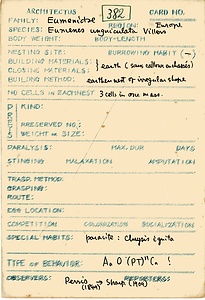 ARCHITECTUS 382 CARD NO.
FAMILY: Eumenidae REGION: Europe
SPECIES: Eumenes unguiculata Villers
BODY WEIGHT: BODY-LENGTH
NESTING SITE: BURROWING HABIT (—)
BUILDING MATERIALS: } earth
CLOSING MATERIALS:
BUILDING METHOD: earthen nest of irregular shape
NO. CELLS IN EACH NEST 3 cells in one mass.
PREY KIND:
PRESERVED NO.:
WEIGHT OR SIZE:
PARALYSIS: MAX. DUR DAYS
STINGING MALAXATION AMPUTATION
TRASP. METHOD:
GRASPING:
ROUTE:
EGG LOCATION:
COMPETITION COLONIZATION SOCIALIZATION
SPECIAL HABITS: parasite: Chrysis ignita
TYPE OF BEHAVIOR:
OBSERVERS: Perris → Sharp (1909) REPORTERS: